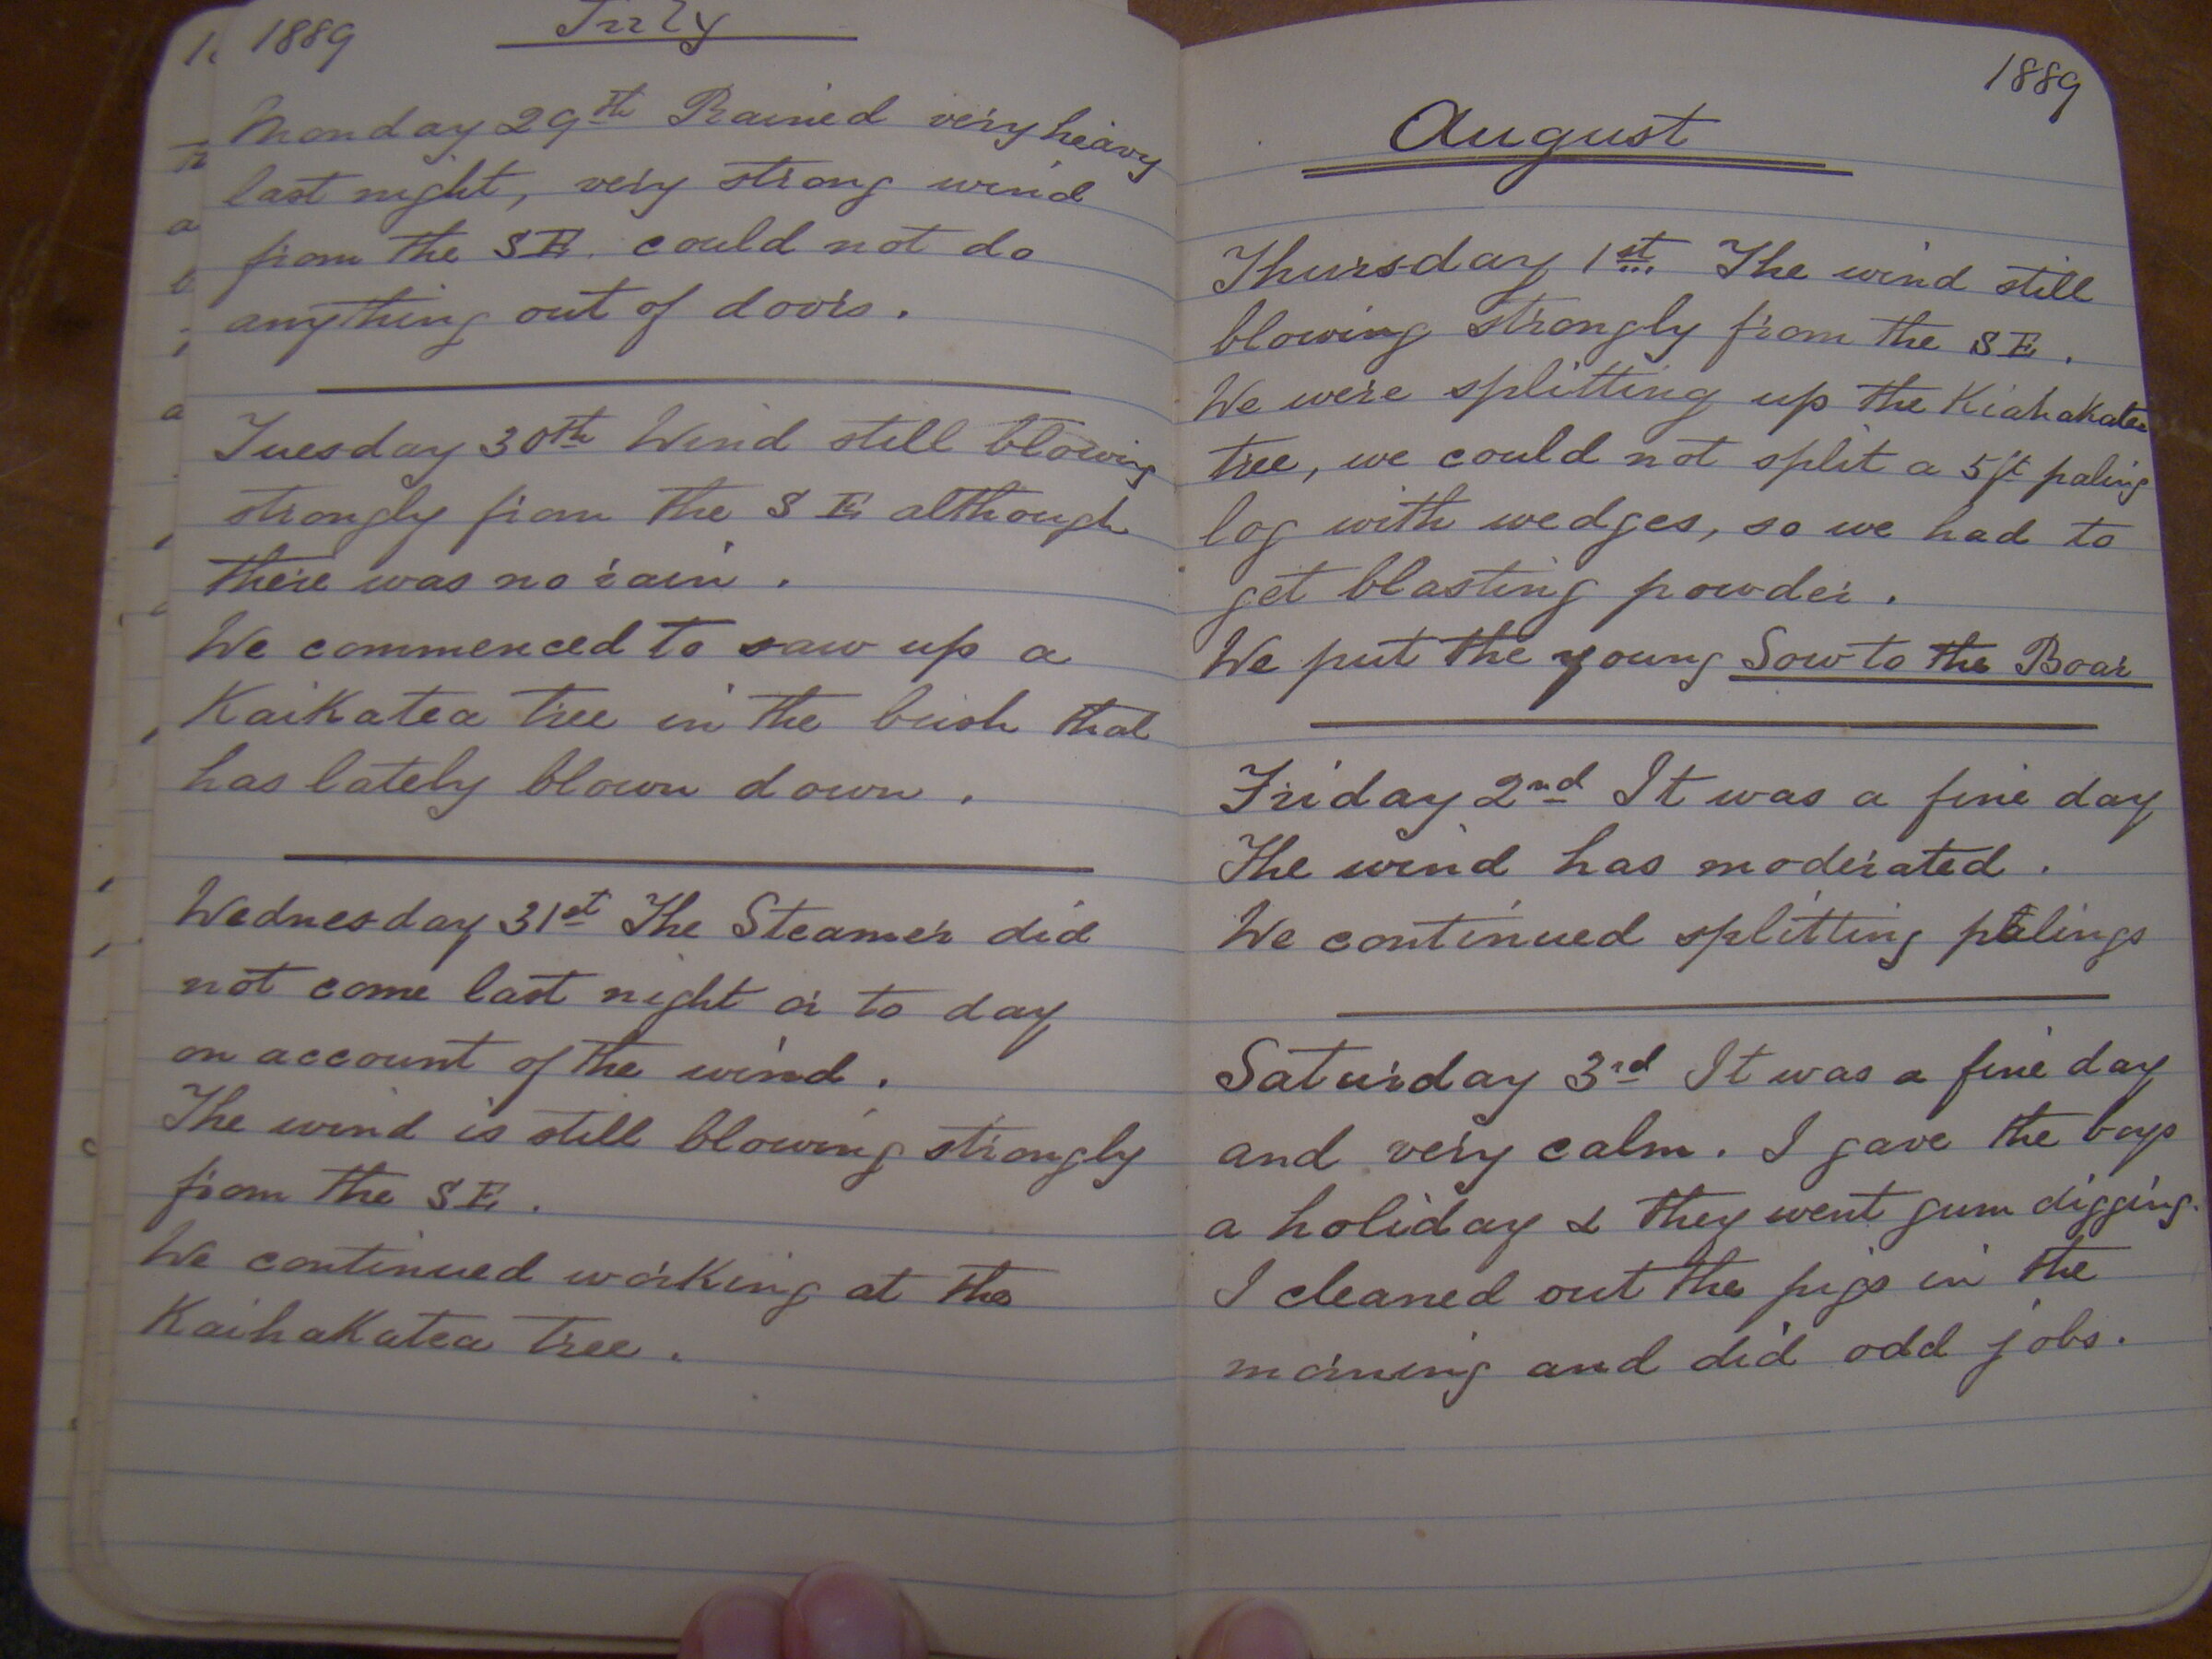 1889 July
Monday 29th Rained very heavy
last night, very strong wind
from the SE. could not do
anything out of doors.
Tuesday 30th Wind still blowing
strongly from the S E although
there was no rain.
We commenced to saw up a
Kaikatea tree in the bush that
has lately blown down.
Wednesday 31st The Steamer did
not come last night or to day
on account of the wind.
The wind is still blowing strongly
from the SE.
We continued working at the
Kaihakatea tree.
1889
August
Thursday 1st The wind still
blowing strongly from the SE.
We were splitting up the Kiahakatea
tree, we could not split a 5ft paling
log with wedges, so we had to
get blasting powder.
We put the young Sow to the Boar
Friday 2nd It was a fine day
The wind has moderated.
We continued splitting palings
Saturday 3rd It was a fine day
and very calm. I gave the boys
a holiday & they went gum digging.
I cleaned out the pigs in the
morning and did odd jobs.